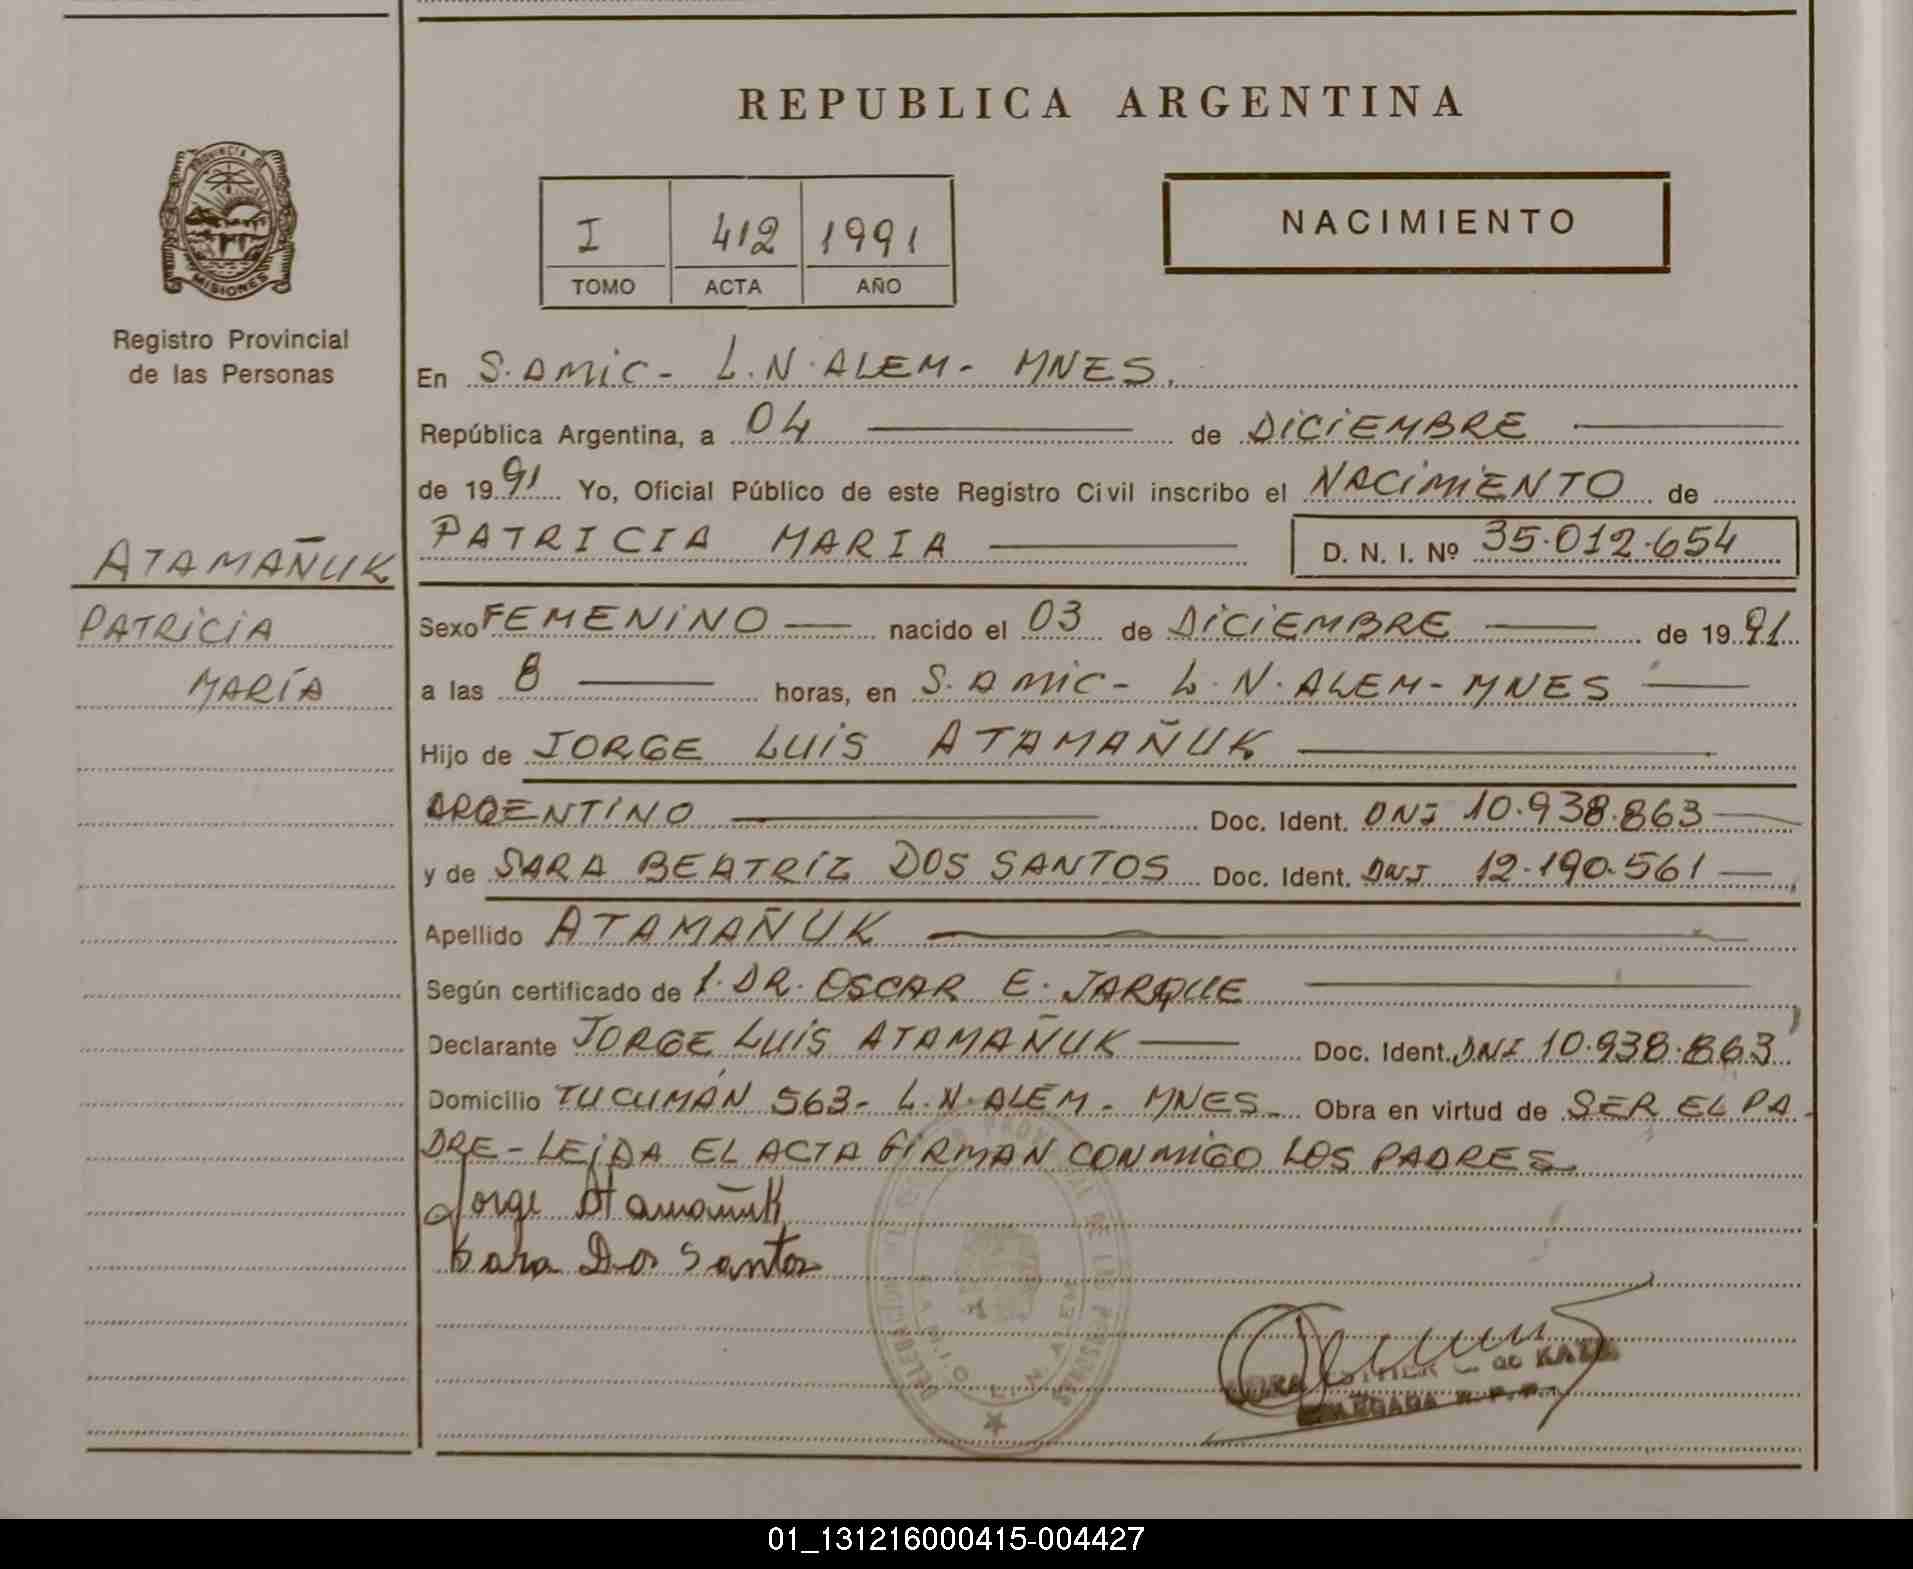 REPUBLICA ARGENTINA
PROVINCIA DE
MISIONES
Registro Provincial
de las Personas
I 412 1991
TOMO ACTA AÑO
NACIMIENTO
En S. AMIC - L.N. ALEM - MNES.
República Argentina, a 04 de DICIEMBRE
de 1991 Yo, Oficial Público de este Registro Civil inscribo el NACIMIENTO de
PATRICIA MARIA D. N. I. Nº 35.012.654
ATAMAÑUK
PATRICIA
MARÍA
Sexo FEMENINO nacido el 03 de DICIEMBRE de 1991
a las 8 horas, en S. AMIC - L.N. ALEM - MNES
Hijo de JORGE LUIS ATAMAÑUK
ARGENTINO Doc. Ident. DNI 10.938.863
y de SARA BEATRIZ DOS SANTOS Doc. Ident. DNI 12.190.561
Apellido ATAMAÑUK
Según certificado de 1. DR. OSCAR E. JARQUE
Declarante JORGE LUIS ATAMAÑUK Doc. Ident. DNI 10.938.863
Domicilio TUCUMÁN 563 - L.N. ALEM - MNES - Obra en virtud de SER EL PA-
DRE - LEIDA EL ACTA FIRMAN CONMIGO LOS PADRES
Jorge Atamañuk
Sara Dos Santos
L. N. ALEM
DE LAS PERSONAS
01_131216000415-004427